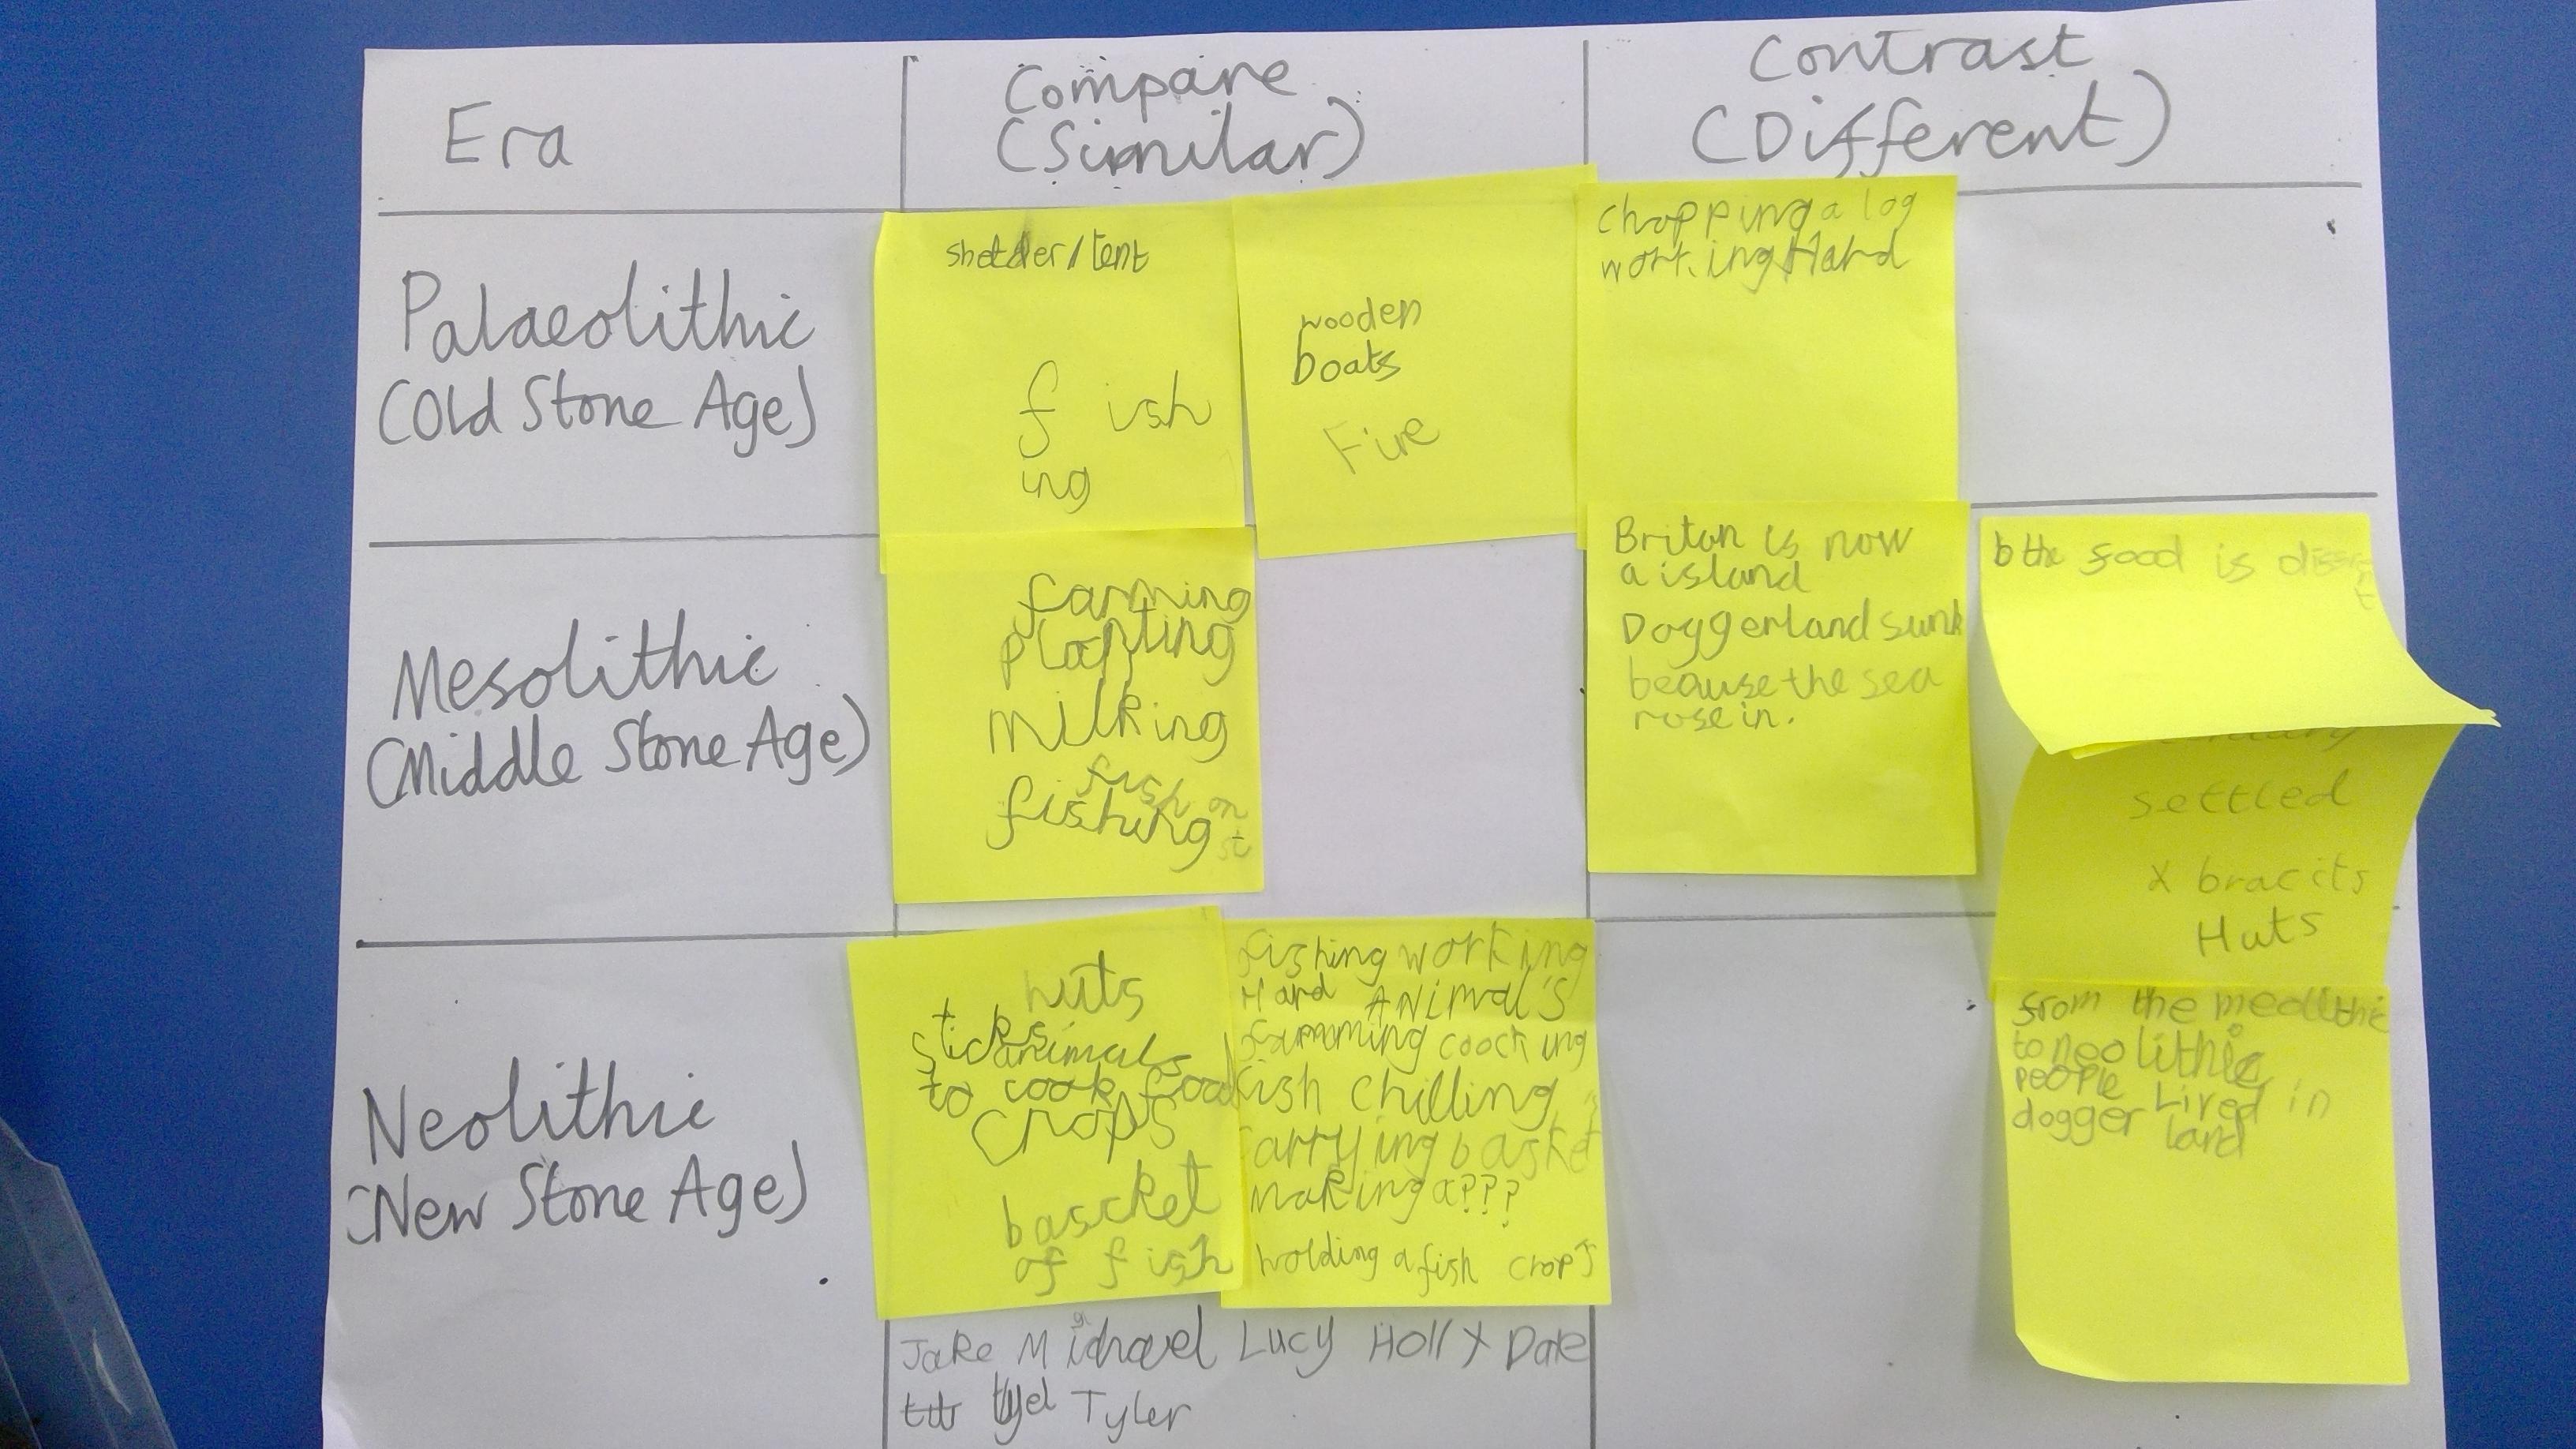 Era
Compare
(Similar)
Contrast
(Different)
Palaeolithic
(Old Stone Age)
shetder/tent
f ish
ing
wooden
boats
Fire
chopping a log
working Hard
Mesolithic
(Middle Stone Age)
farming
planting
milking
fish on
fishing st
Britan is now
a island
Doggerland sunk
because the sea
rose in.
b the food is
settled
x bracits
Huts
Neolithic
(New Stone Age)
huts
sticks
animals
to cook food
crops
bascket
of fish
fishing working
Hard ANimal's
farmming coocking
fish chilling
carrying basket
making a???
holding a fish crops
from the meolithic
to neolithic
people Lived in
dogger land
Jake Michael Lucy Holly Date
Tyler